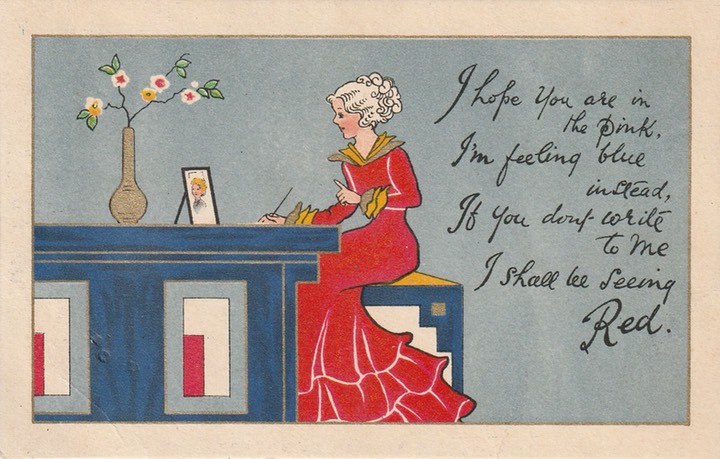 I hope You are in
the pink,
I'm feeling blue
instead,
If You don't write
to Me
I shall be Seeing
Red.